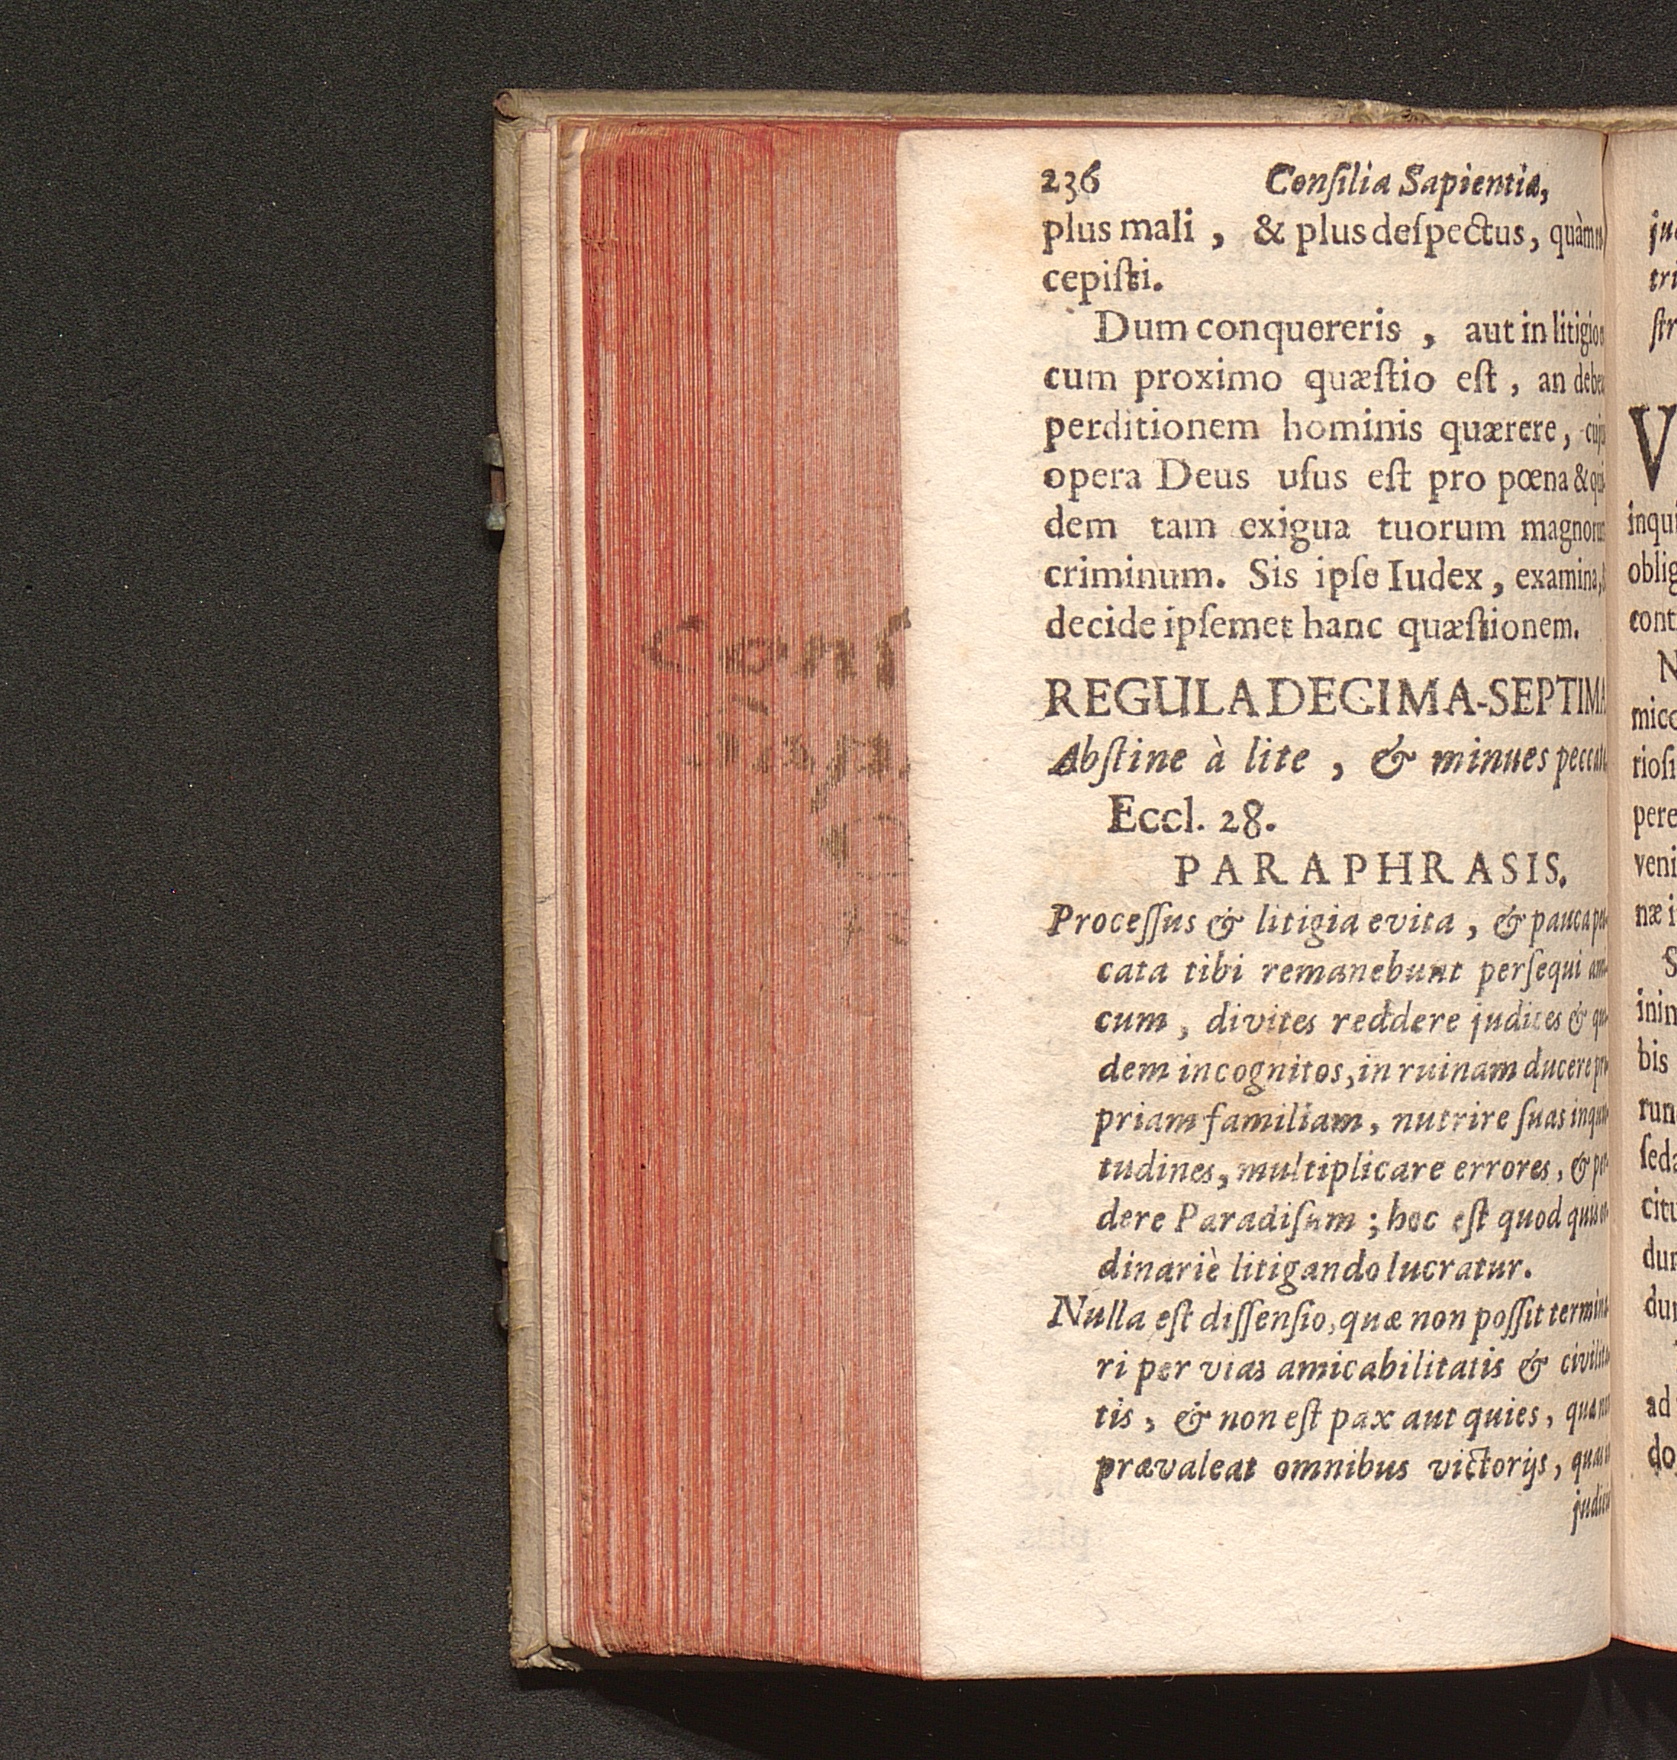 236 Conſilia Sapientiæ,
plus mali , & plus deſpectus, quàm
cepiſti.
Dum conquereris , aut in litigio
cum proximo quæſtio eſt , an
perditionem hominis quærere,
opera Deus uſus eſt pro pœna &
dem tam exigua tuorum
criminum. Sis ipſe Iudex, examina,
decide ipſemet hanc quæſtionem.
REGULA DECIMA-SEPTIMA
Abſtine à lite , & minues
Eccl. 28.
PARAPHRASIS.
Proceſſus & litigia evita , & pauca
cata tibi remanebunt perſequi
cum , divites reddere judices &
dem incognitos, in ruinam ducere
priam familiam, nutrire ſuas
tudines, multiplicare errores, &
dere Paradiſum ; hoc eſt quod
dinariè litigando lucratur.
Nulla eſt diſſenſio, quæ non poſſit
ri per vias amicabilitatis &
tis , & non eſt pax aut quies,
prævaleat omnibus victorijs,
Conſ
Sapi
inqui
oblig
cont
mico
rioſi
pere
veni
næ i
bis
run
ſeda
citu
dur
ad
do